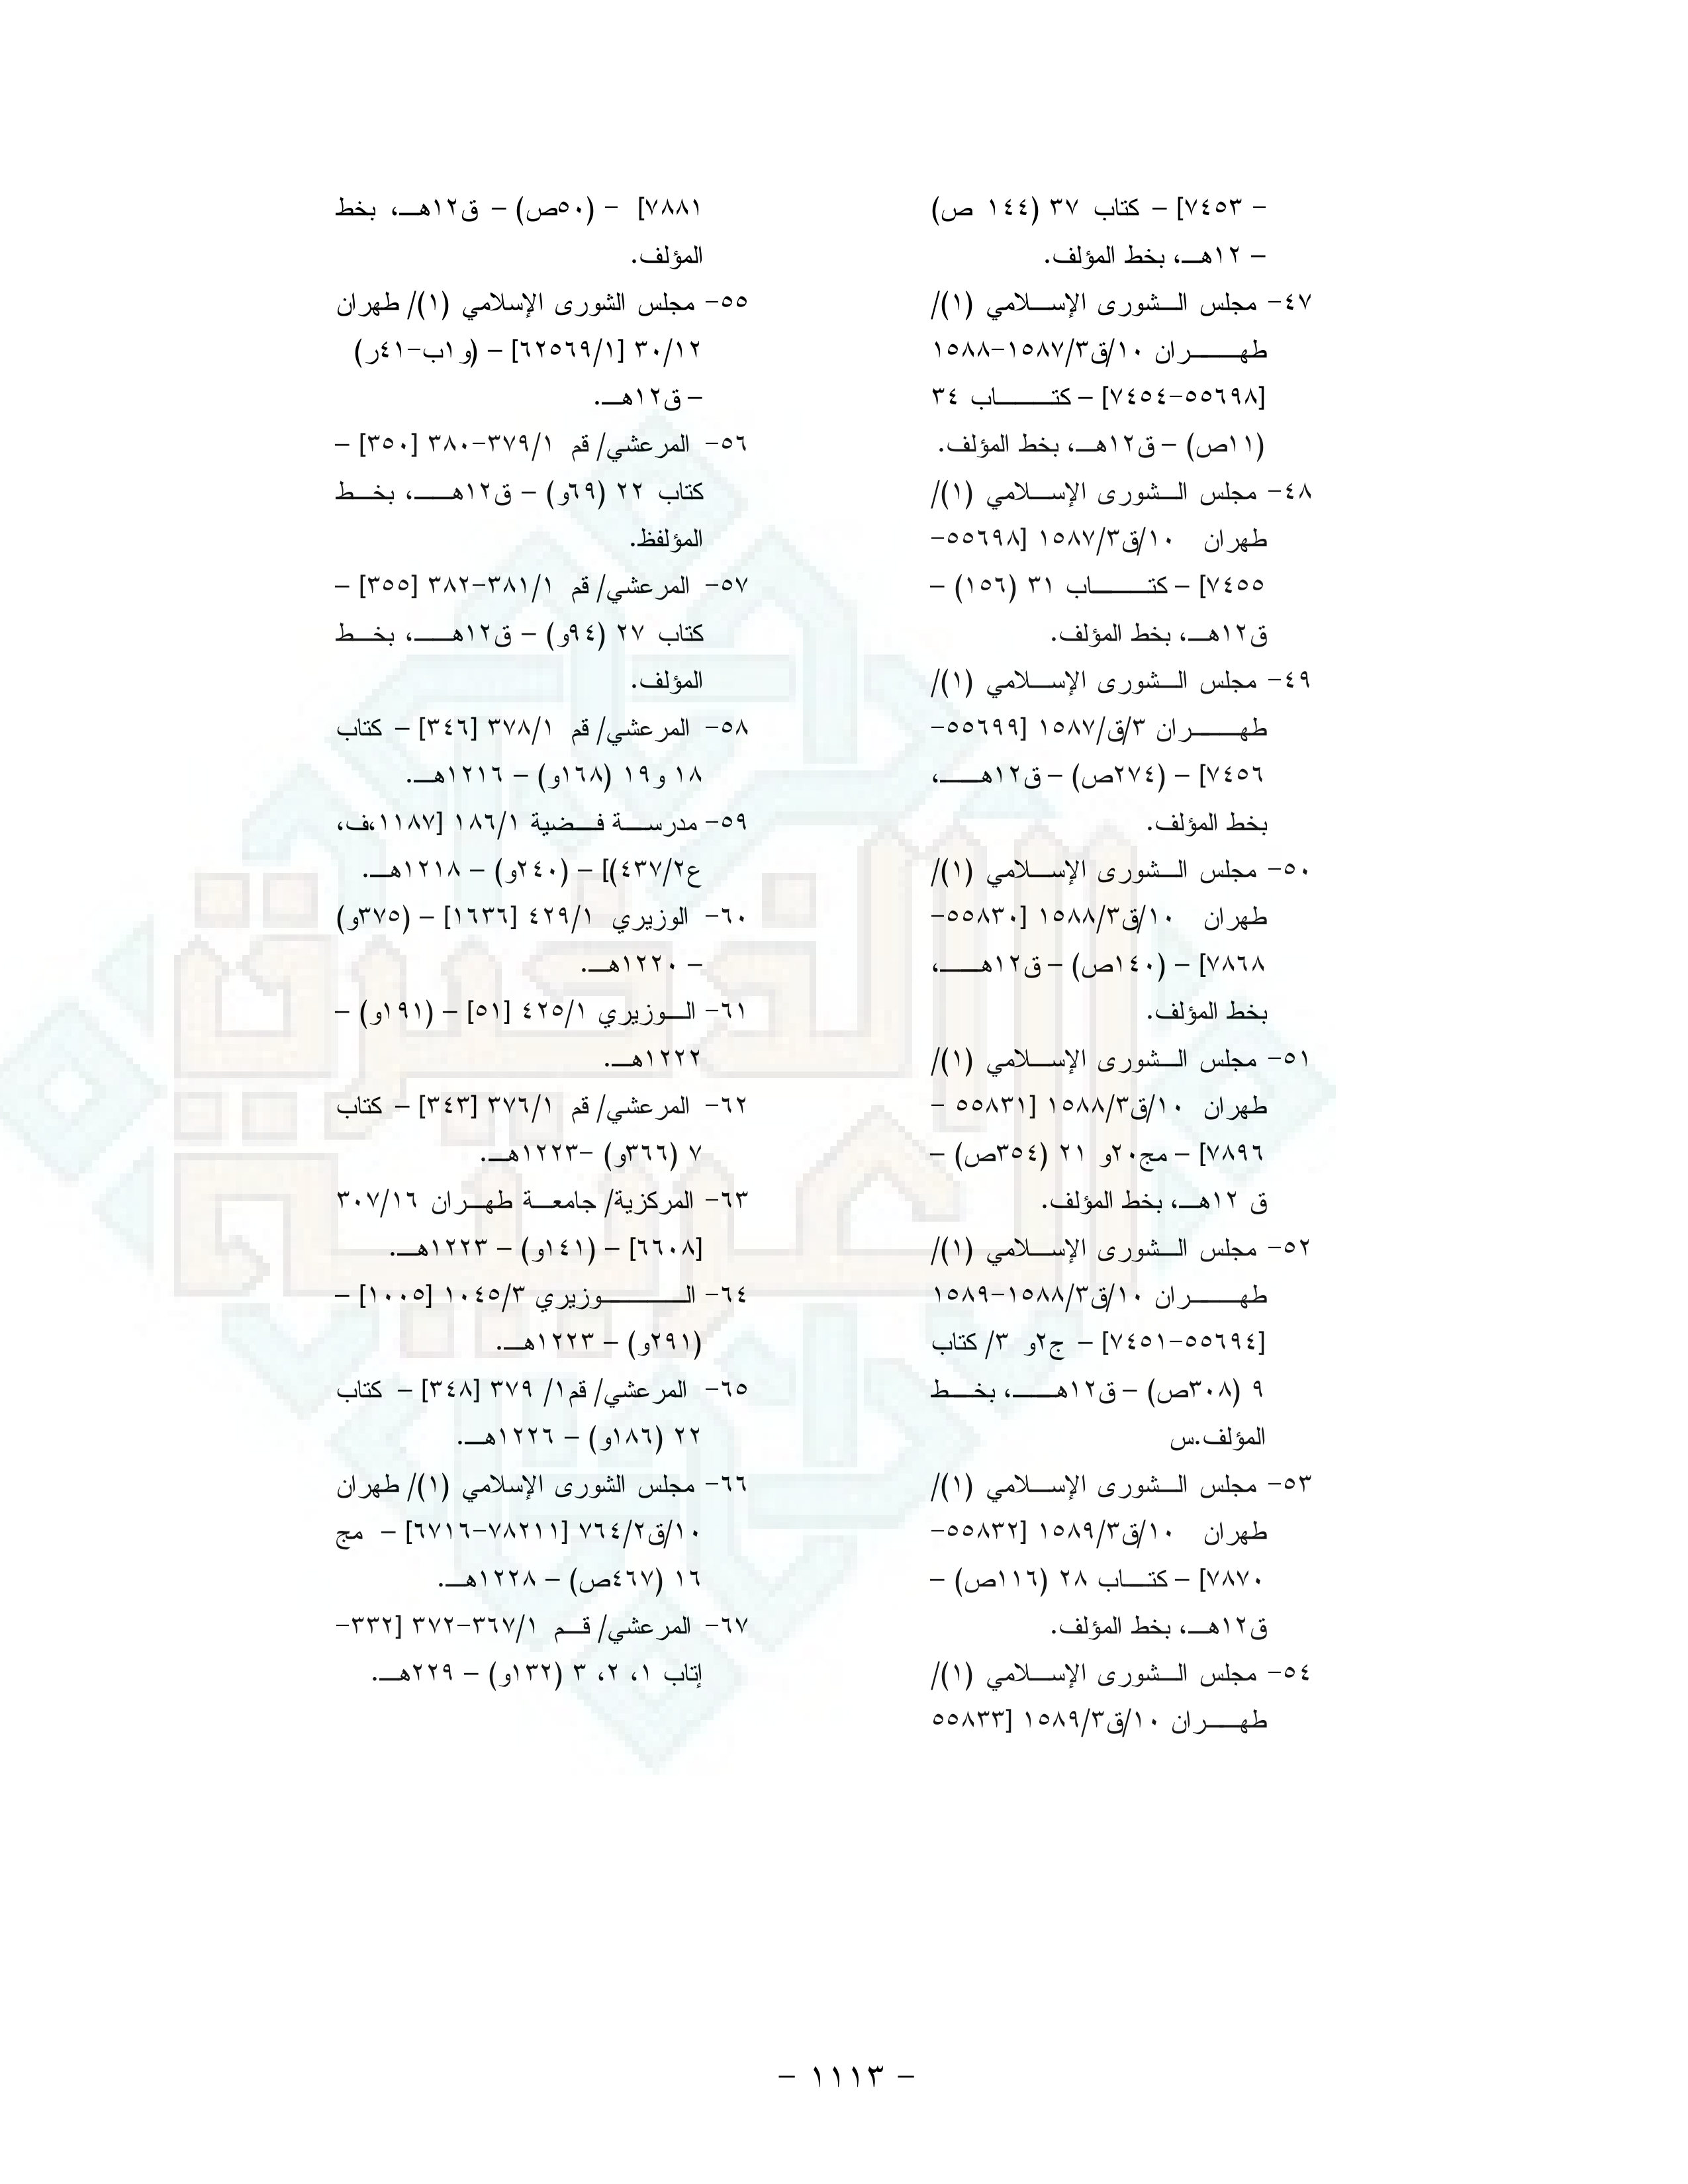 - ٧٤٥٣] – كتاب ٣٧ (١٤٤ ص)
– ١٢هـ، بخط المؤلف.
٤٧- مجلس الشورى الإسلامي (١)/
طهران ١٠/ق٣/١٥٨٧-١٥٨٨
[٥٥٦٩٨-٧٤٥٤] – كتاب ٣٤
(١١ص) – ق١٢هـ، بخط المؤلف.
٤٨- مجلس الشورى الإسلامي (١)/
طهران ١٠/ق٣/١٥٨٧ [٥٥٦٩٨-
٧٤٥٥] – كتاب ٣١ (١٥٦) –
ق١٢هـ، بخط المؤلف.
٤٩- مجلس الشورى الإسلامي (١)/
طهران ٣/ق/١٥٨٧ [٥٥٦٩٩-
٧٤٥٦] – (٢٧٤ص) – ق١٢هـ،
بخط المؤلف.
٥٠- مجلس الشورى الإسلامي (١)/
طهران ١٠/ق٣/١٥٨٨ [٥٥٨٣٠-
٧٨٦٨] – (١٤٠ص) – ق١٢هـ،
بخط المؤلف.
٥١- مجلس الشورى الإسلامي (١)/
طهران ١٠/ق٣/١٥٨٨ [٥٥٨٣١ -
٧٨٩٦] – مج٢٠و ٢١ (٣٥٤ص) –
ق ١٢هـ، بخط المؤلف.
٥٢- مجلس الشورى الإسلامي (١)/
طهران ١٠/ق٣/١٥٨٨-١٥٨٩
[٥٥٦٩٤-٧٤٥١] – ج٢و ٣/ كتاب
٩ (٣٠٨ص) – ق١٢هـ، بخط
المؤلف.س
٥٣- مجلس الشورى الإسلامي (١)/
طهران ١٠/ق٣/١٥٨٩ [٥٥٨٣٢-
٧٨٧٠] – كتاب ٢٨ (١١٦ص) –
ق١٢هـ، بخط المؤلف.
٥٤- مجلس الشورى الإسلامي (١)/
طهران ١٠/ق٣/١٥٨٩ [٥٥٨٣٣
٧٨٨١] - (٥٠ص) – ق١٢هـ، بخط
المؤلف.
٥٥- مجلس الشورى الإسلامي (١)/ طهران
٣٠/١٢ [٦٢٥٦٩/١] – (و١ب-٤١ر)
– ق١٢هـ.
٥٦- المرعشي/ قم ٣٧٩/١-٣٨٠ [٣٥٠] –
كتاب ٢٢ (٦٩و) – ق١٢هـ، بخط
المؤلفظ.
٥٧- المرعشي/ قم ٣٨١/١-٣٨٢ [٣٥٥] –
كتاب ٢٧ (٩٤و) – ق١٢هـ، بخط
المؤلف.
٥٨- المرعشي/ قم ٣٧٨/١ [٣٤٦] – كتاب
١٨ و١٩ (١٦٨و) – ١٢١٦هـ.
٥٩- مدرسة فضية ١٨٦/١ [١١٨٧،ف،
ع٤٣٧/٢)] – (٢٤٠و) – ١٢١٨هـ.
٦٠- الوزيري ٤٢٩/١ [١٦٣٦] – (٣٧٥و)
– ١٢٢٠هـ.
٦١- الوزيري ٤٢٥/١ [٥١] – (١٩١و) –
١٢٢٢هـ.
٦٢- المرعشي/ قم ٣٧٦/١ [٣٤٣] – كتاب
٧ (٣٦٦و) –١٢٢٣هـ.
٦٣- المركزية/ جامعة طهران ٣٠٧/١٦
[٦٦٠٨] – (١٤١و) – ١٢٢٣هـ.
٦٤- الوزيري ١٠٤٥/٣ [١٠٠٥] –
(٢٩١و) – ١٢٢٣هـ.
٦٥- المرعشي/ قم١/ ٣٧٩ [٣٤٨] – كتاب
٢٢ (١٨٦و) – ١٢٢٦هـ.
٦٦- مجلس الشورى الإسلامي (١)/ طهران
١٠/ق٧٦٤/٢ [٧٨٢١١-٦٧١٦] – مج
١٦ (٤٦٧ص) – ١٢٢٨هـ.
٦٧- المرعشي/ قم ٣٦٧/١-٣٧٢ [٣٣٢-
إتاب ١، ٢، ٣ (١٣٢و) – ٢٢٩هـ.
الذخيرة
العربية
- ١١١٣ -